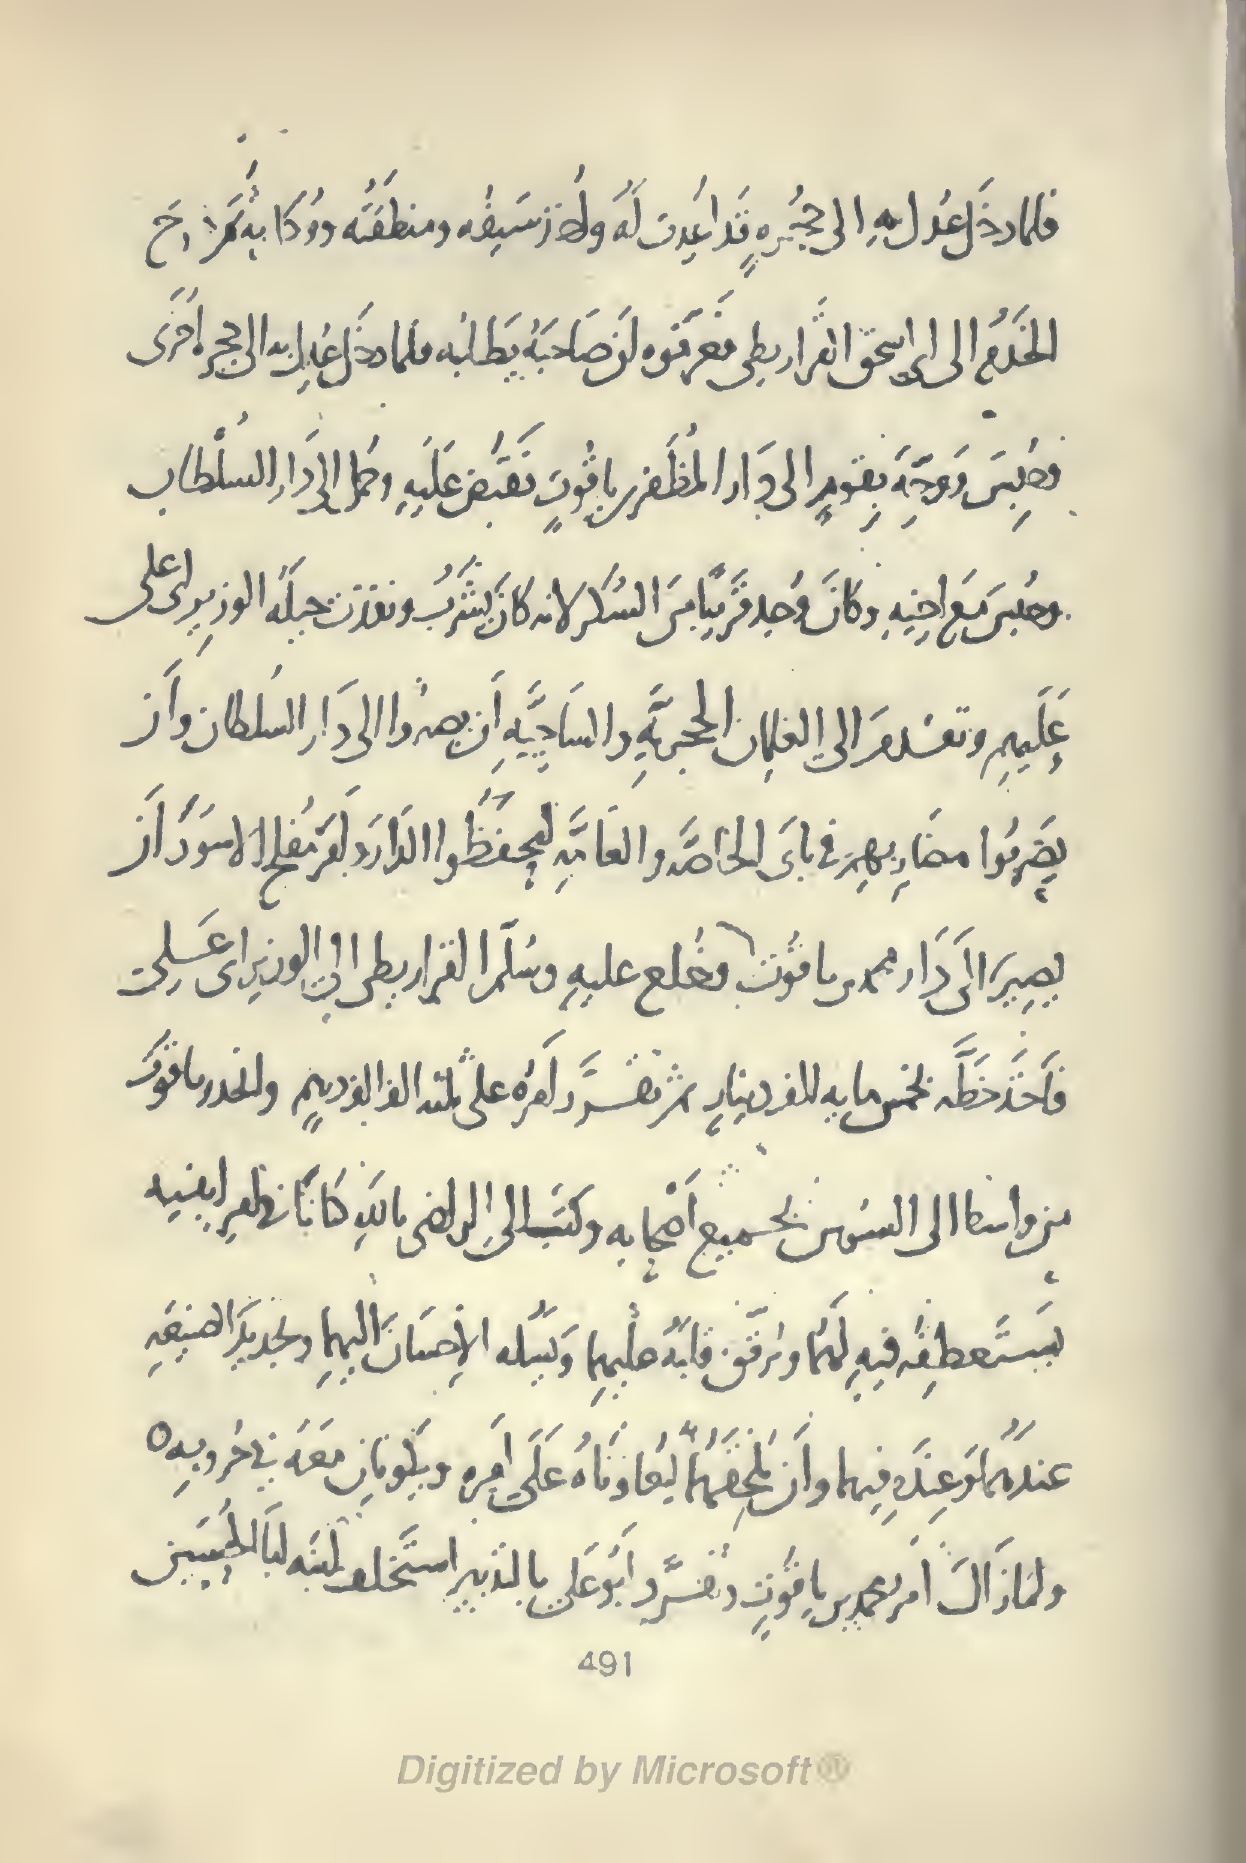 فلما دخل عُدل به الى حجرةٍ قد اُعدت له واُخذ سيفه ومنطقته ودوكابه ثم خرج
الخدم الى ابى اسحق القراريطى فعرفوه ان صاحبه يطلبه فلما دخل عُدل به الى حجرة اخرى
فحُبس ووجّه بقومٍ الى دار المظفر بن ياقوتٍ فقبض عليه وحمل الى دار السلطان
وحبس مع اخيه وكان وُجد قريبًا من السكر لانه كان يشرب ونفذت حيلة الوزير ابى على
عليهم وتقدم الى الغلمان الحجرية والساجية أن يصيروا الى دار السلطان وأن
يضربوا مضاربهم فى بابى الخاصة والعامة ليحفظوا الدار وأمر مفلح الاسود أن
يصير الى دار محمد بن ياقوت وخلع عليه وسلّم القراريطى الى الوزير ابى على
فأخذ خطّه بخمس مايه الف دينارٍ ثم تقرّر أمره على ثلثه الف الف درهمٍ وانحدر ياقوت
من واسط الى السوس بجميع أصحابه وكتب الى الراضى بالله كتابًا فى امر ابنيه
يستعطفه فيه لهما ويرقق قلبه عليهما ويسله الإحسان اليهما وتجديد الصنيعة
عندهما وعنده فيهما وأن يلحقهما ليعاوناه على أمره ويكونان معه فى حروبه ٥
ولما زال امر محمد بن ياقوتٍ وتفرّد أبو على بالتدبير استخلف ابنه ابا الحسين
491
Digitized by Microsoft®